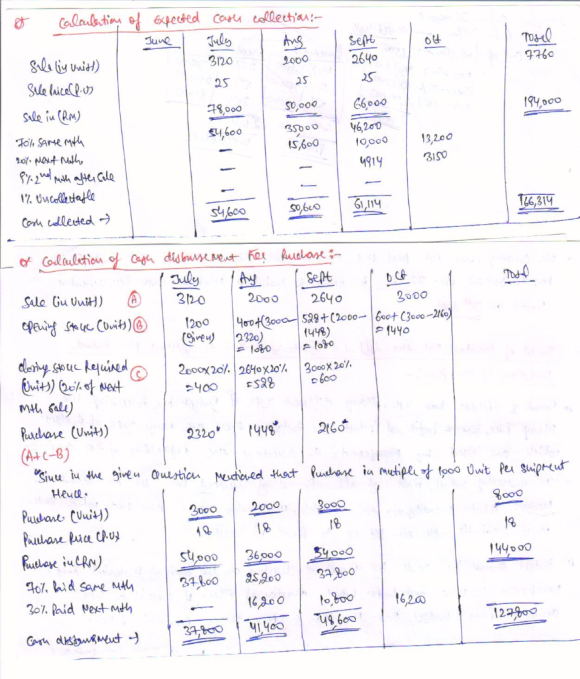 Calculation of Expected Cash collection:-
June July Aug Sept Oct Total
Sale (in Unit) 3120 2000 2640 7760
Sale Price (P.U) 25 25 25
Sale in (RM) 78,000 50,000 66,000 194,000
70% Same Mth 54,600 35000 46,200
20% Next Mth — 15,600 10,000 13,200
9% 2nd Mth after Sale — — 4914 3150
1% Uncollectable — — —
Cash collected → 54,600 50,600 61,114 166,314
Calculation of Cash disbursement For Purchase:-
July Aug Sept Oct Total
Sale (in Unit) (A) 3120 2000 2640 3000
Opening Stock (Units) (B) 1200 400+(3000- 528+(2000- 600+(3000-2160)
(Given) 2320) 1448) =1440
=1080 =1080
closing Stock Required (C) 2000x20% 2640x20% 3000x20%
(Units) (20% of Next =400 =528 =600
Mth Sale)
Purchase (Units) 2320* 1448* 2160*
(A+C-B)
*Since in the given Question Mentioned that Purchase in multiple of 1000 Unit Per shipment
Hence.
Purchase (Unit) 3000 2000 3000 8000
Purchase Price (P.U) 18 18 18 18
Purchase in (RM) 54,000 36000 54000 144000
70% Paid Same Mth 37,800 25,200 37,800
30% Paid Next Mth — 16,200 10,800 16,200
Cash disbursement → 37,800 41,400 48,600 127,800